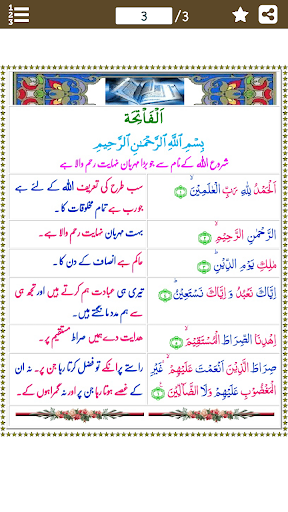 3 /3
اَلْفَاتِحَة
بِسْمِ اللّٰهِ الرَّحْمٰنِ الرَّحِيْمِ
شروع اللہ کے نام سے جو بڑا مہربان نہایت رحم والا ہے
اَلْحَمْدُ لِلّٰهِ رَبِّ الْعٰلَمِيْنَ
سب طرح کی تعریف اللہ کے لئے ہے
جو رب ہے تمام مخلوقات کا۔
الرَّحْمٰنِ الرَّحِيْمِ
بہت مہربان نہایت رحم والا ہے۔
مٰلِكِ يَوْمِ الدِّيْنِ
حاکم ہے انصاف کے دن کا۔
اِيَّاكَ نَعْبُدُ وَ اِيَّاكَ نَسْتَعِيْنُ
تیری ہی عبادت ہم کرتے ہیں اور تجھ ہی
سے ہم مدد مانگتے ہیں۔
اِهْدِنَا الصِّرَاطَ الْمُسْتَقِيْمَ
ہدایت دے ہمیں صراط مستقیم پر۔
صِرَاطَ الَّذِيْنَ اَنْعَمْتَ عَلَيْهِمْ غَيْرِ
الْمَغْضُوْبِ عَلَيْهِمْ وَلَا الضَّآلِّيْنَ
راستے پر انکے تو فضل کرتا رہا جن پر۔ نہ ان
کے غصے ہوتا رہا جن پر اور نہ گمراہوں کے۔